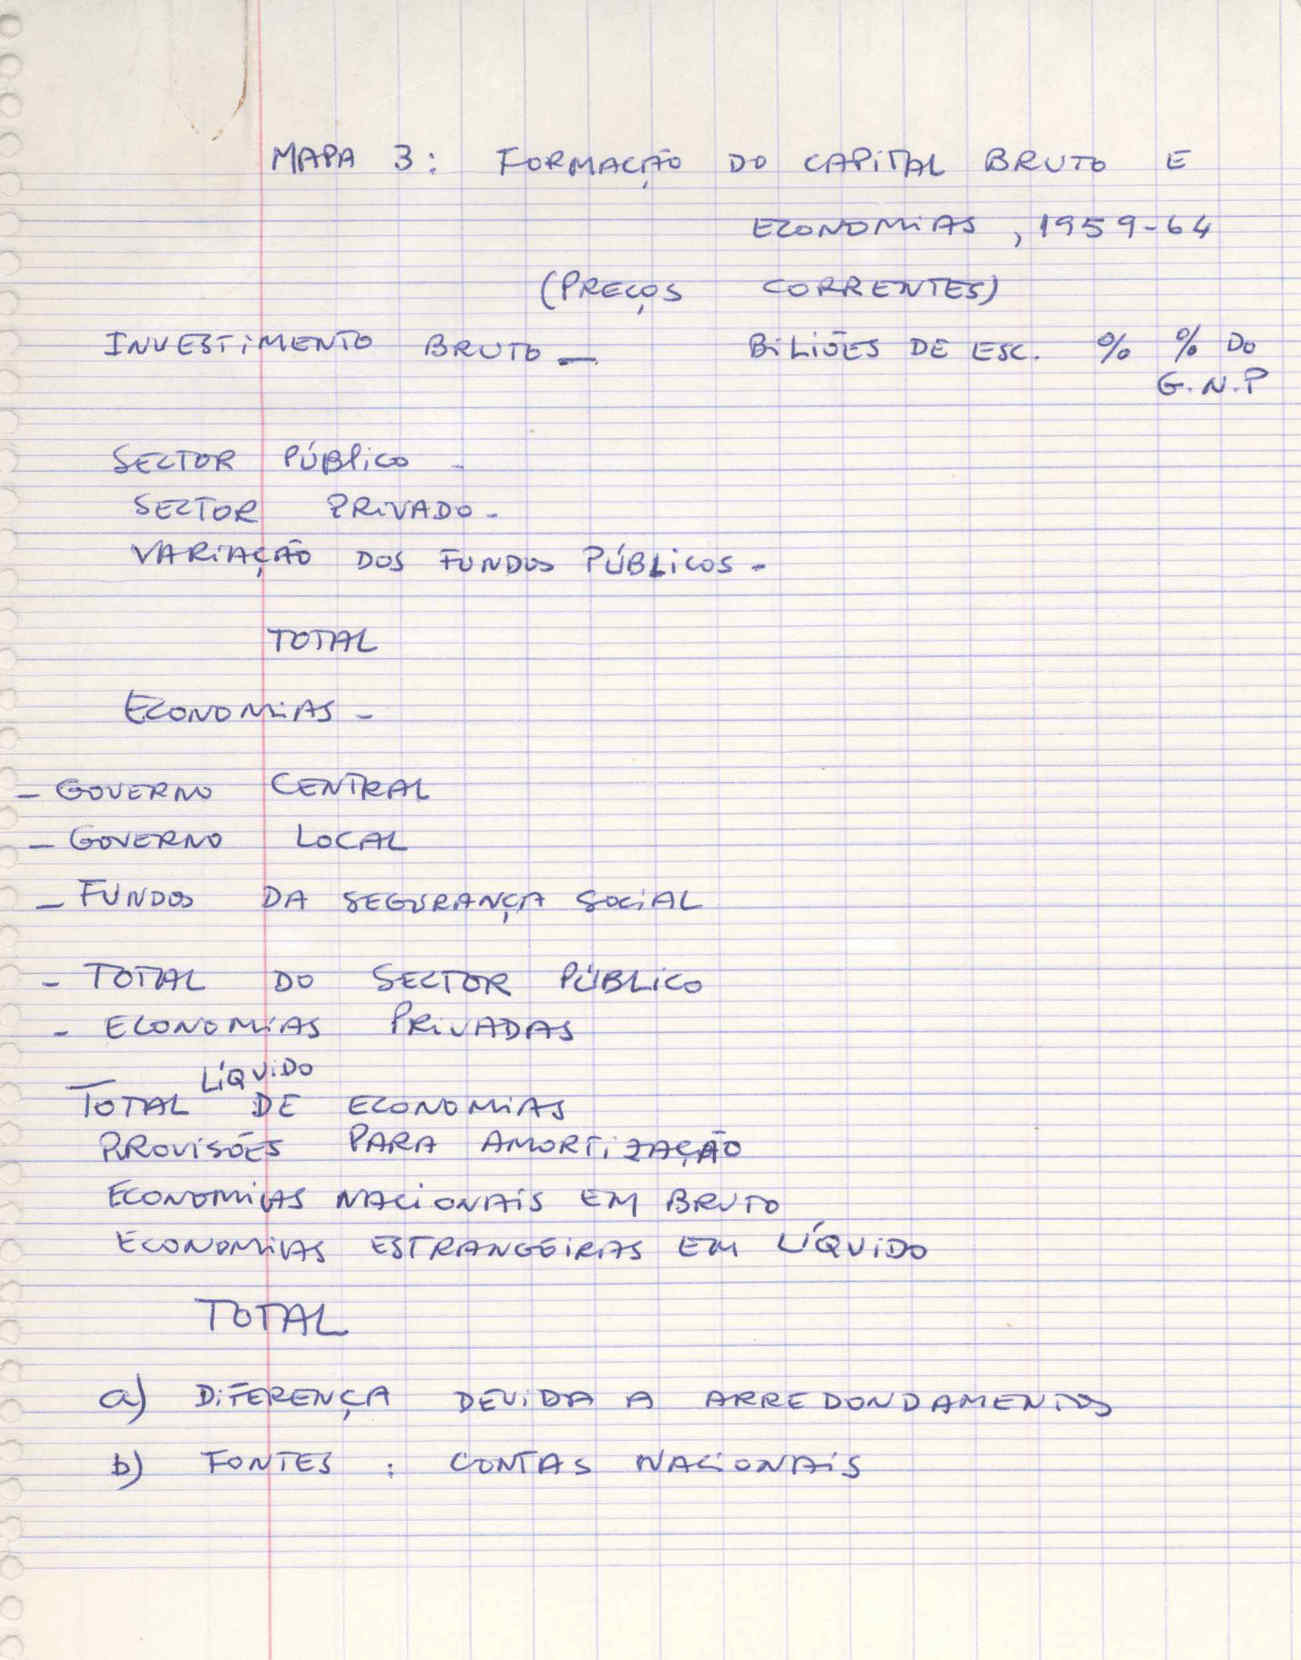 MAPA 3: FORMAÇÃO DO CAPITAL BRUTO E
ECONOMIAS, 1959-64
(PREÇOS CORRENTES)
INVESTIMENTO BRUTO — BILIÕES DE ESC. % % DO
G.N.P
SECTOR PÚBLICO -
SECTOR PRIVADO -
VARIAÇÃO DOS FUNDOS PÚBLICOS -
TOTAL
ECONOMIAS -
- GOVERNO CENTRAL
- GOVERNO LOCAL
- FUNDOS DA SEGURANÇA SOCIAL
- TOTAL DO SECTOR PÚBLICO
- ECONOMIAS PRIVADAS
— LÍQUIDO
TOTAL DE ECONOMIAS
PROVISÕES PARA AMORTIZAÇÃO
ECONOMIAS NACIONAIS EM BRUTO
ECONOMIAS ESTRANGEIRAS EM LÍQUIDO
TOTAL
a) DIFERENÇA DEVIDA A ARREDONDAMENTOS
b) FONTES : CONTAS NACIONAIS